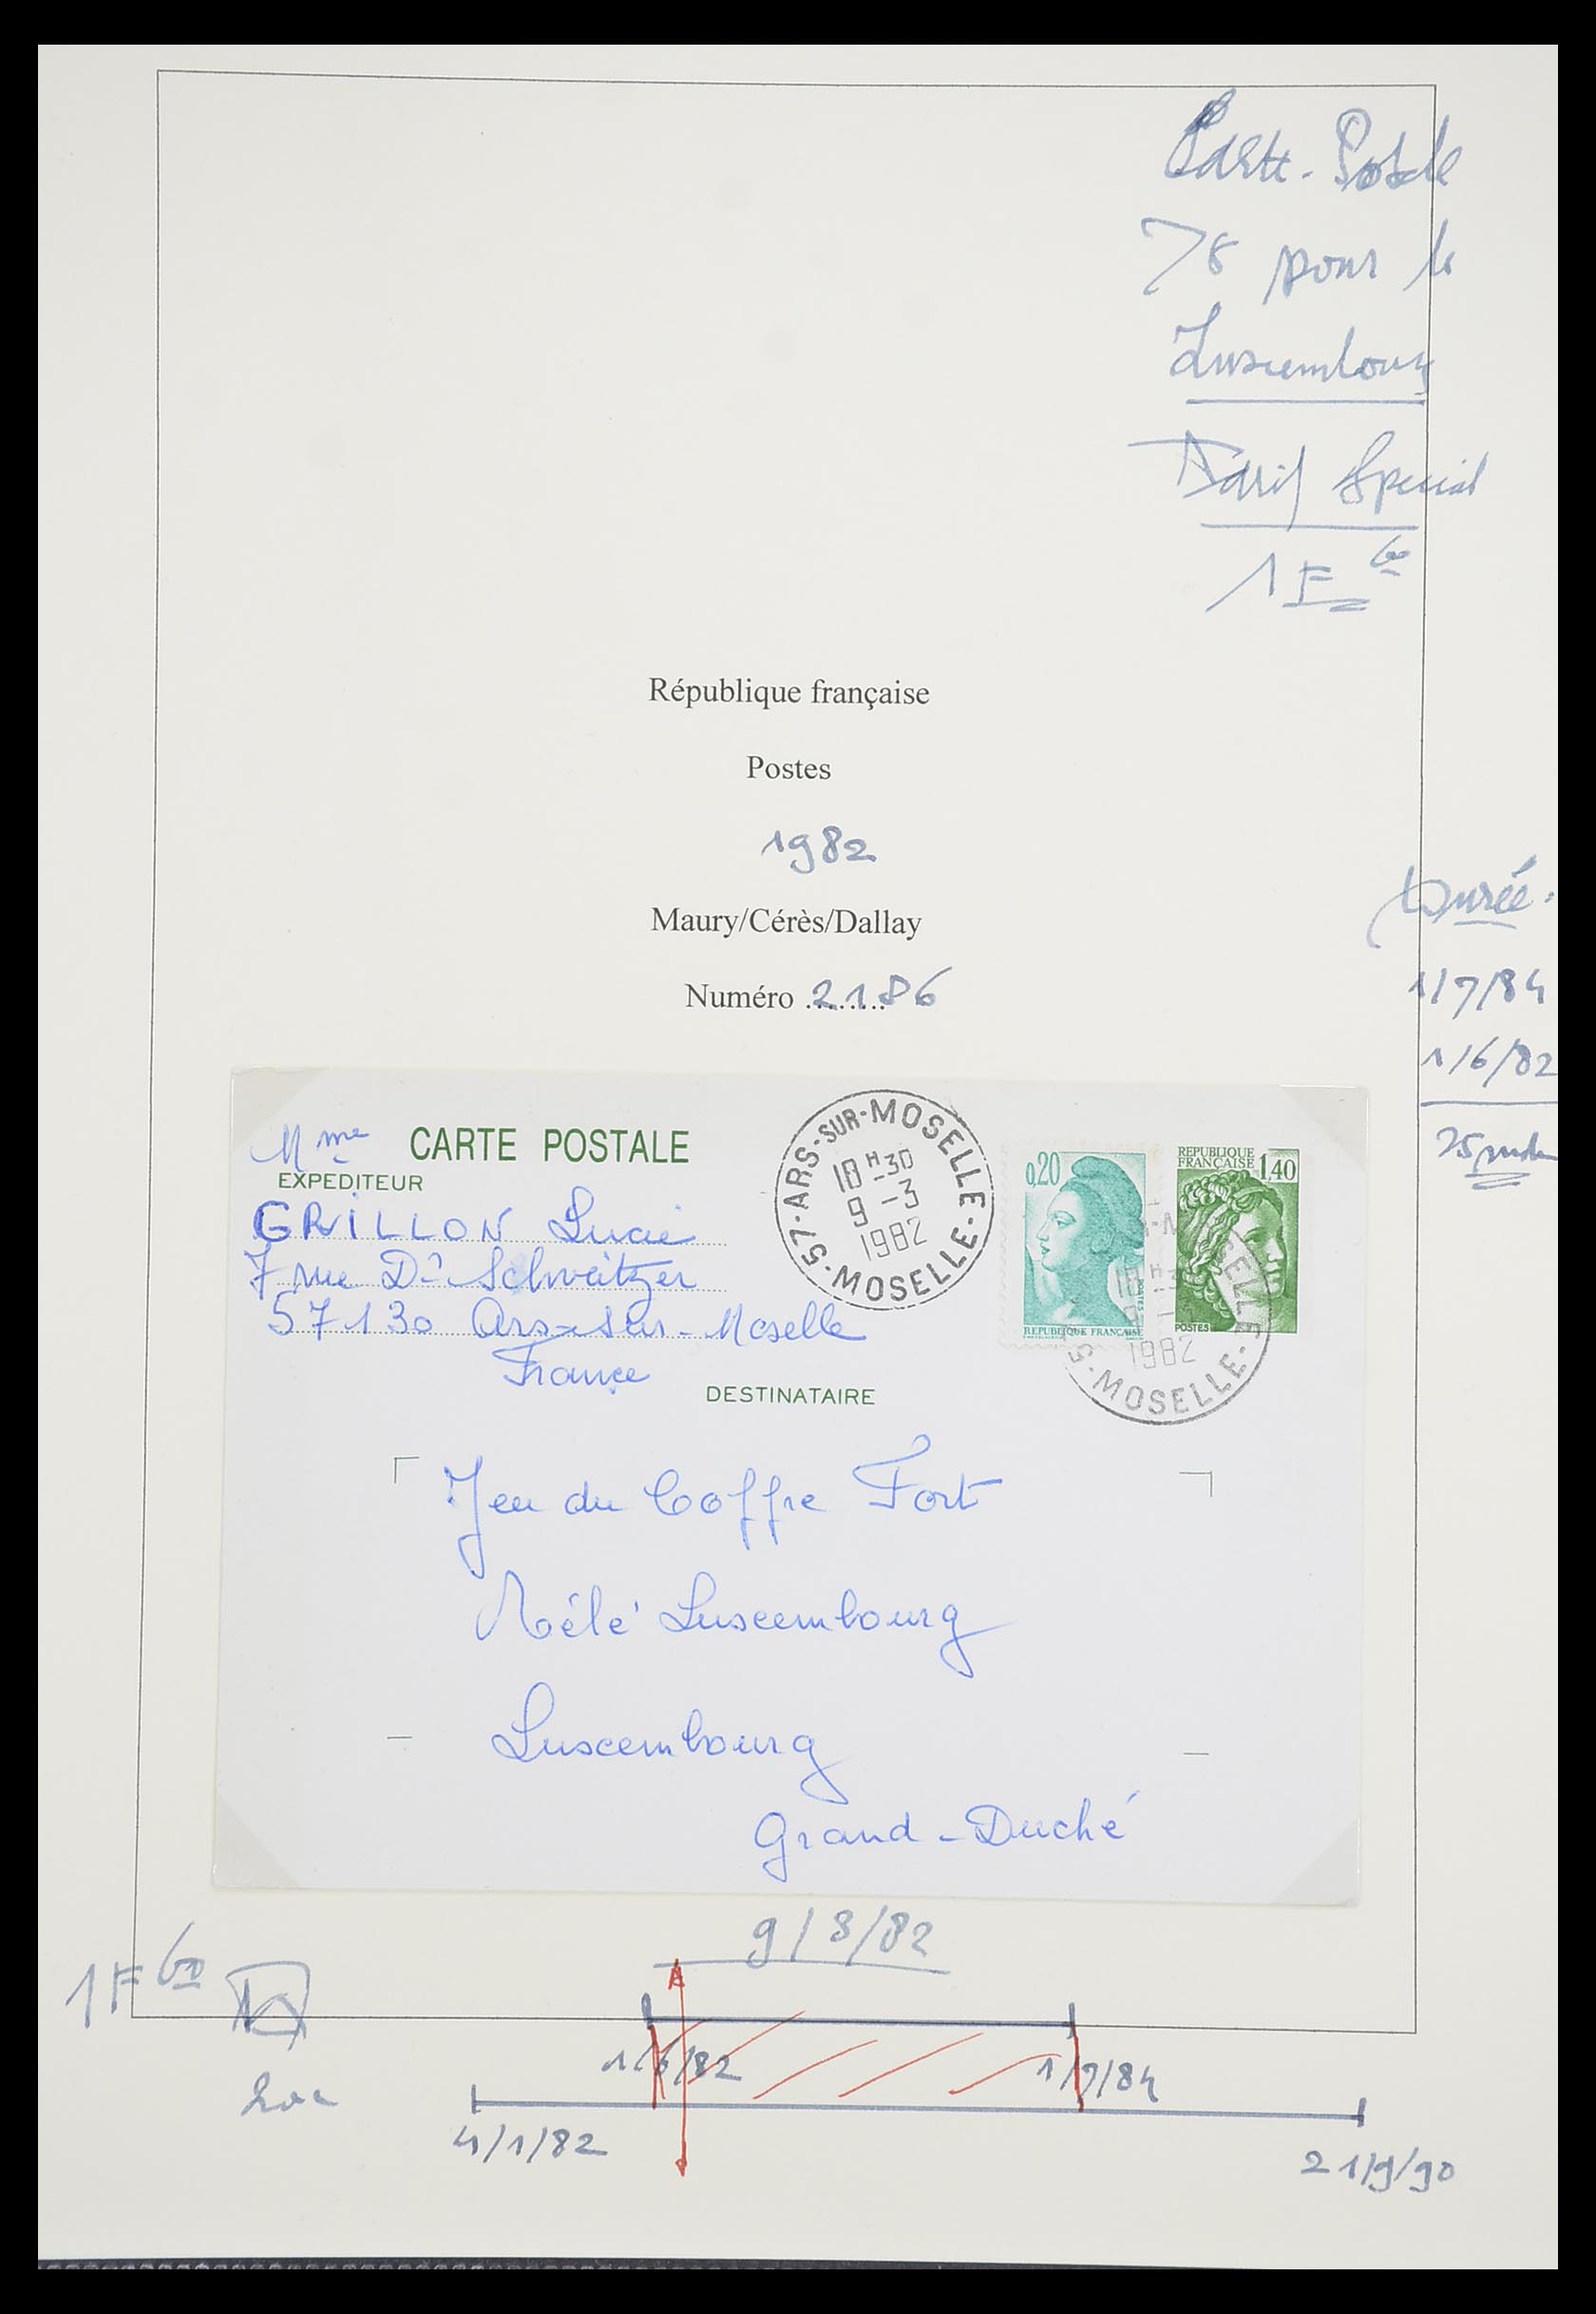 Carte-Postale
78 pour le
Luxembourg
Tarif Special
1F 60
République française
Postes
1982
Maury/Cérès/Dallay
Numéro 2186
Durée.
1/7/84
1/6/82
25
Mme CARTE POSTALE
EXPEDITEUR
GRILLON Lucie
7 rue Dr Schweitzer
57130 Ars-sur-Moselle
France
57-ARS-SUR-MOSELLE-MOSELLE
18H30
9-3
1982
0,20
REPUBLIQUE FRANÇAISE
POSTES
REPUBLIQUE
FRANÇAISE 1,40
POSTES
1982
MOSELLE
DESTINATAIRE
Jeu du Coffre Fort
Télé Luxembourg
Luxembourg
Grand-Duché
9/3/82
1F 60
1/6/82
1/7/84
20c
4/1/82
21/9/90